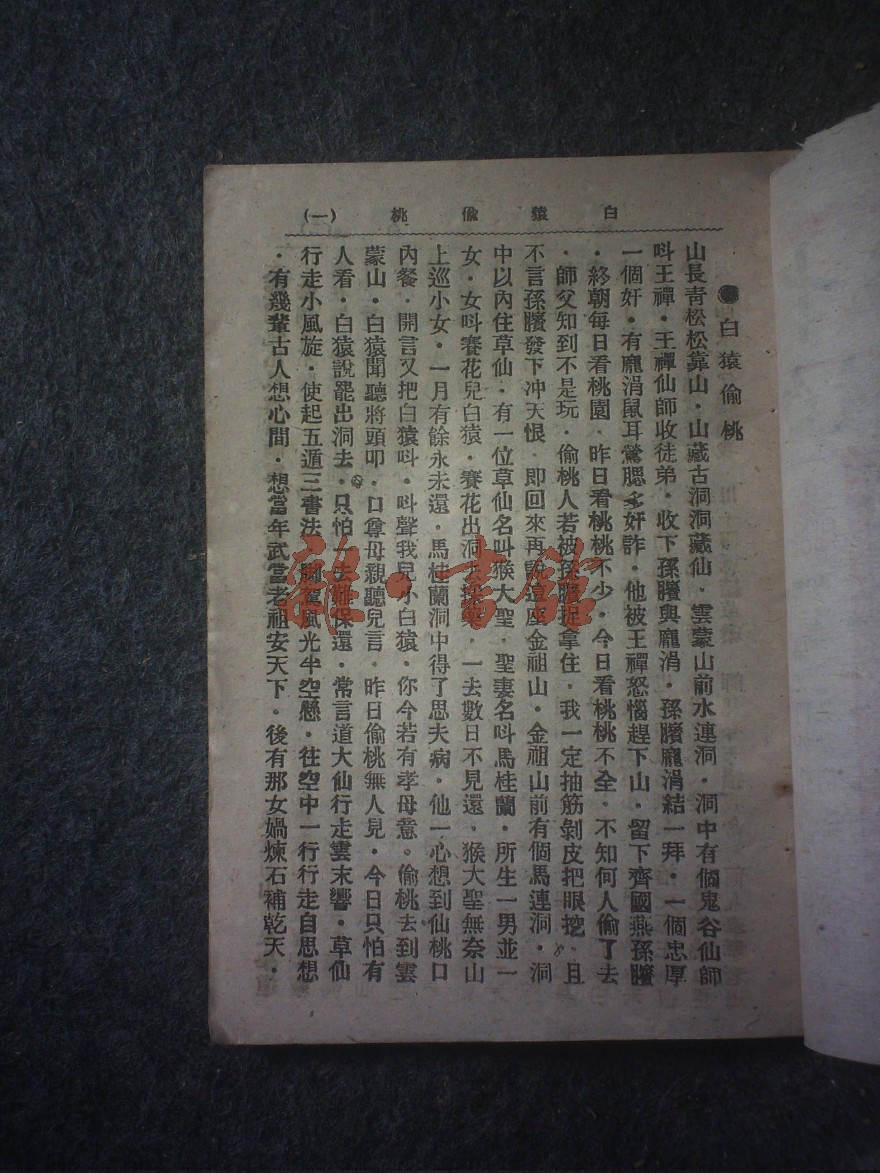 白猿偷桃 (一)
白猿偷桃
山長青松松靠山．山藏古洞洞藏仙．雲蒙山前水連洞．洞中有個鬼谷仙師
呌王禪．王禪仙師收徒弟．收下孫臏與龐涓．孫臏龐涓結一拜．一個忠厚
一個奸．有龐涓鼠耳驚腮多奸詐．他被王禪怒惱趕下山．留下齊國燕孫臏
．終朝每日看桃園．昨日看桃桃不少．今日看桃桃不全．不知何人偷了去
．師父知到不是玩．偷桃人若被孫臏捉拿住．我一定抽筋剝皮把眼挖．且
不言孫臏發下冲天恨．即回來再說這座金祖山．金祖山前有個馬連洞．洞
中以內住草仙．有一位草仙名叫猴大聖．聖妻名呌馬桂蘭．所生一男並一
女．女呌賽花兒白猿．賽花出洞去．一去數日不見還．猴大聖無奈山
上巡小女．一月有餘永未還．馬桂蘭洞中得了思夫病．他一心想到仙桃口
內餐．開言又把白猿呌．呌聲我兒小白猿．你今若有孝母意。偷桃去到雲
蒙山．白猿聞聽將頭叩．口尊母親聽兒言．昨日偷桃無人見．今日只怕有
人看．白猿說罷出洞去．只怕一去難保還．常言道大仙行走雲末響．草仙
行走小風旋．使起五遁三書法．脚駕風光半空懸．往空中一行行走自思想
．有幾輩古人想心間．想當年武當老祖安天下．後有那女媧煉石補乾天．
雜·書館